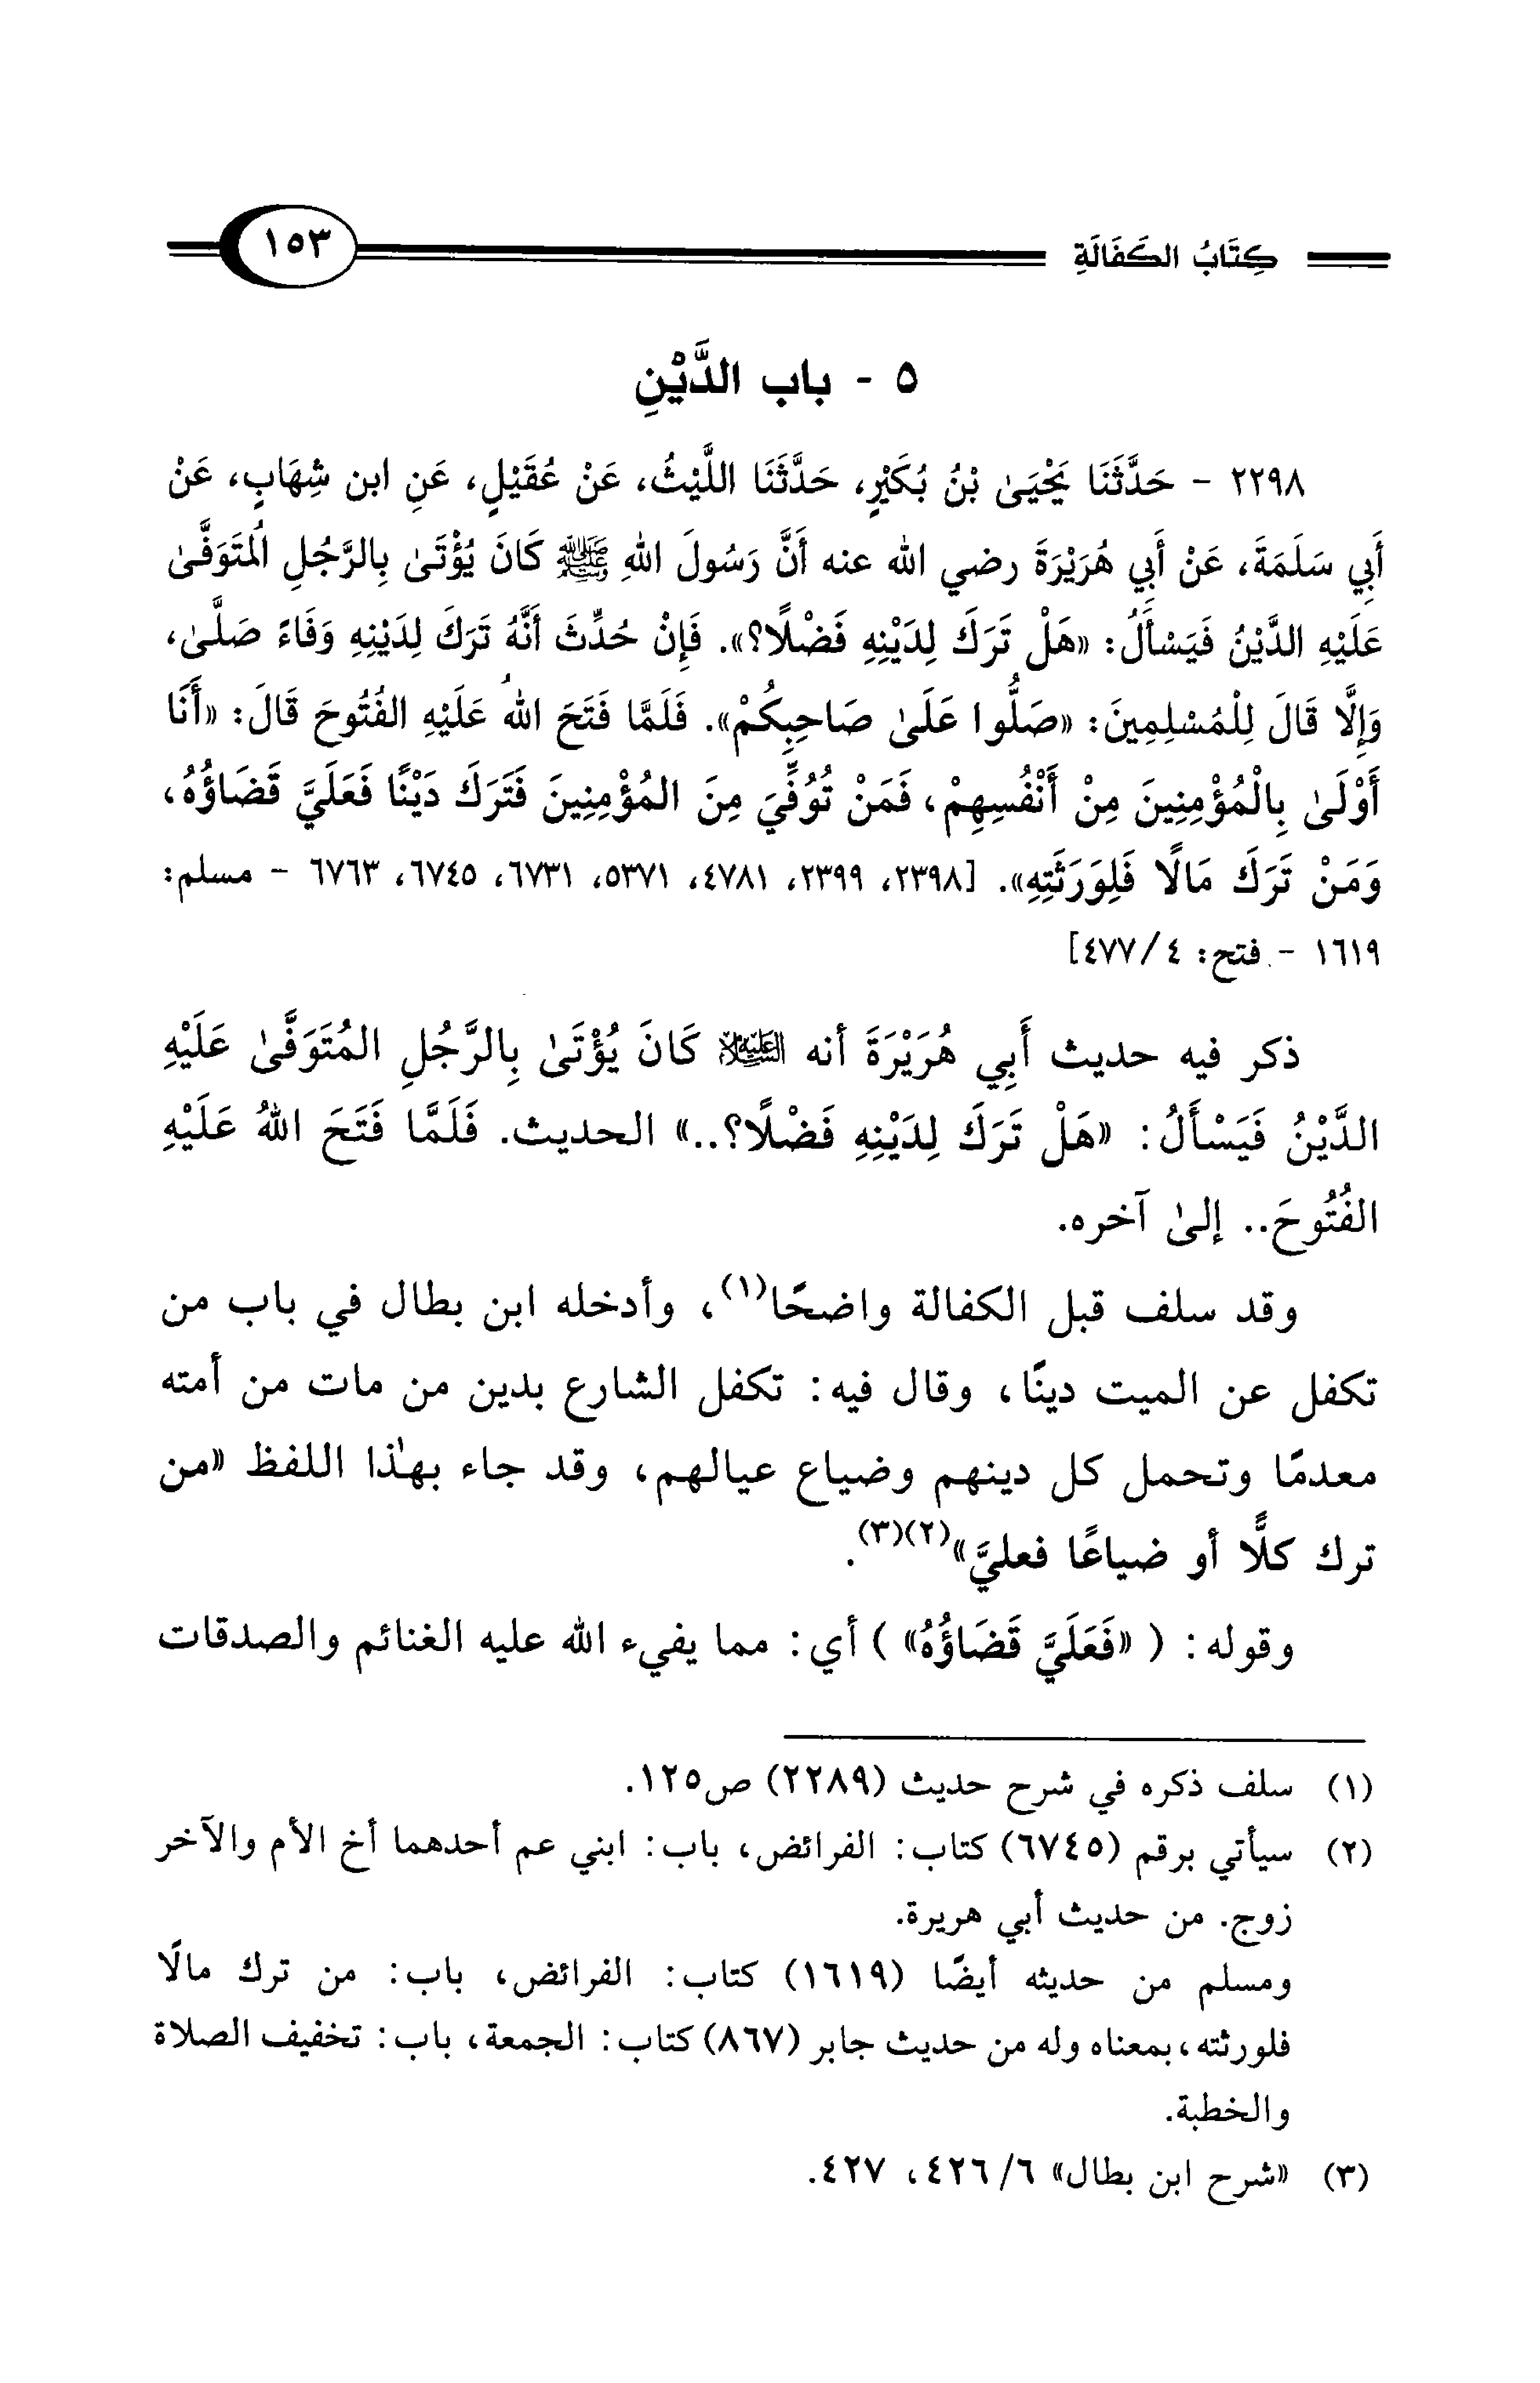 كِتَابُ الكَفَالَةِ ١٥٣
٥ - باب الدَّيْنِ
٢٢٩٨ - حَدَّثَنَا يَحْيَىٰ بْنُ بُكَيْرٍ، حَدَّثَنَا اللَّيْثُ، عَنْ عُقَيْلٍ، عَنِ ابن شِهَابٍ، عَنْ
أَبِي سَلَمَةَ، عَنْ أَبِي هُرَيْرَةَ رضي الله عنه أَنَّ رَسُولَ اللهِ ﷺ كَانَ يُؤْتَىٰ بِالرَّجُلِ الُمتَوَفَّىٰ
عَلَيْهِ الدَّيْنُ فَيَسْأَلُ: «هَلْ تَرَكَ لِدَيْنِهِ فَضْلًا؟». فَإِنْ حُدِّثَ أَنَّهُ تَرَكَ لِدَيْنِهِ وَفَاءً صَلَّىٰ،
وَإِلَّا قَالَ لِلْمُسْلِمِينَ: «صَلُّوا عَلَىٰ صَاحِبِكُمْ». فَلَمَّا فَتَحَ اللهُ عَلَيْهِ الفُتُوحَ قَالَ: «أَنَا
أَوْلَىٰ بِالْمُؤْمِنِينَ مِنْ أَنْفُسِهِمْ، فَمَنْ تُوُفِّيَ مِنَ المُؤْمِنِينَ فَتَرَكَ دَيْنًا فَعَلَيَّ قَضَاؤُهُ،
وَمَنْ تَرَكَ مَالًا فَلِوَرَثَتِهِ». [٢٣٩٨، ٢٣٩٩، ٤٧٨١، ٥٣٧١، ٦٧٣١، ٦٧٤٥، ٦٧٦٣ - مسلم:
١٦١٩ - فتح: ٤/٤٧٧]
ذكر فيه حديث أَبِي هُرَيْرَةَ أنه عليه السلام كَانَ يُؤْتَىٰ بِالرَّجُلِ المُتَوَفَّىٰ عَلَيْهِ
الدَّيْنُ فَيَسْأَلُ: «هَلْ تَرَكَ لِدَيْنِهِ فَضْلًا؟..» الحديث. فَلَمَّا فَتَحَ اللهُ عَلَيْهِ
الفُتُوحَ.. إلىٰ آخره.
وقد سلف قبل الكفالة واضحًا(١)، وأدخله ابن بطال في باب من
تكفل عن الميت دينًا، وقال فيه: تكفل الشارع بدين من مات من أمته
معدمًا وتحمل كل دينهم وضياع عيالهم، وقد جاء بهٰذا اللفظ «من
ترك كلًّا أو ضياعًا فعليَّ»(٢)(٣).
وقوله: ( «فَعَلَيَّ قَضَاؤُهُ» ) أي: مما يفيء الله عليه الغنائم والصدقات
(١) سلف ذكره في شرح حديث (٢٢٨٩) ص١٢٥.
(٢) سيأتي برقم (٦٧٤٥) كتاب: الفرائض، باب: ابني عم أحدهما أخ الأم والآخر
زوج. من حديث أبي هريرة.
ومسلم من حديثه أيضًا (١٦١٩) كتاب: الفرائض، باب: من ترك مالًا
فلورثته، بمعناه وله من حديث جابر (٨٦٧) كتاب: الجمعة، باب: تخفيف الصلاة
والخطبة.
(٣) «شرح ابن بطال» ٦/ ٤٢٦، ٤٢٧.